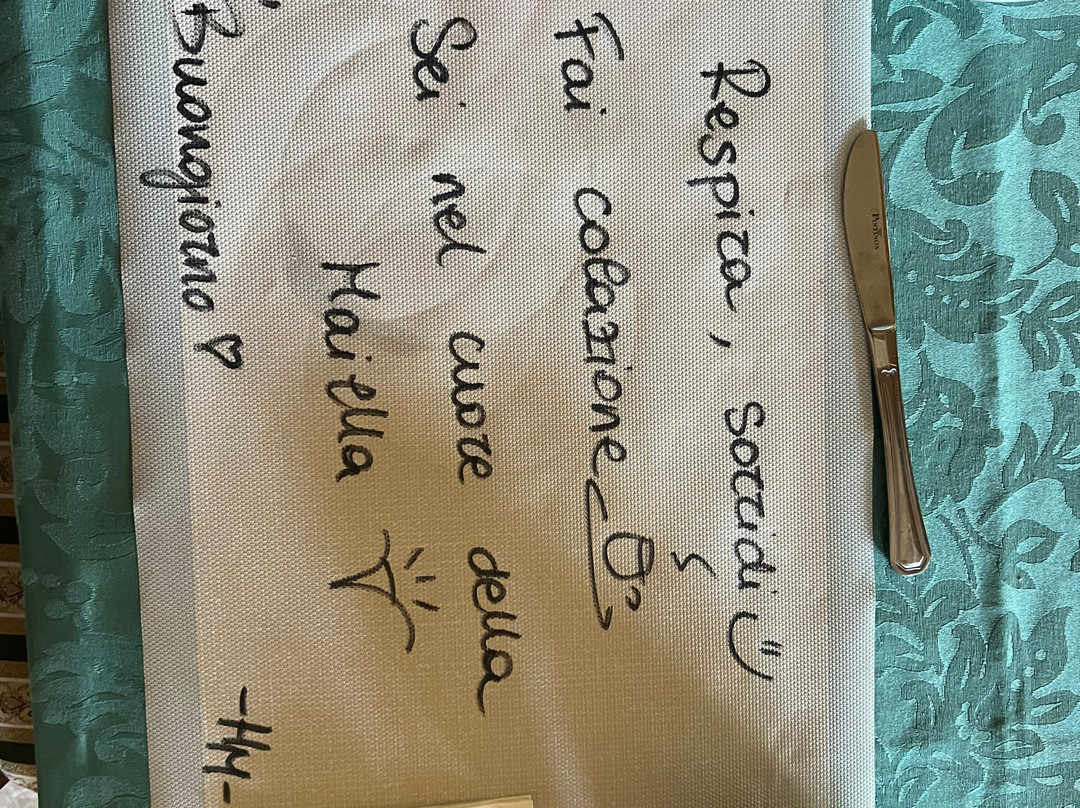 Respira, sorridi
Fai colazione
Sei nel cuore della
Maiella
Buongiorno ♡
-HM-
PINTINOX